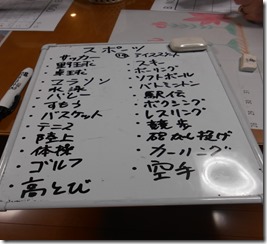 スポーツ
・サッカー
・野球
・卓球
・マラソン
・水泳
・バレー
・すもう
・バスケット
・テニス
・陸上
・体操
・ゴルフ
・高とび
・アイススケート
・スキー
・ボーリング
・ソフトボール
・バトミントン
・駅伝
・ボクシング
・レスリング
・競歩
・砲丸投げ
・カーリング
・空手